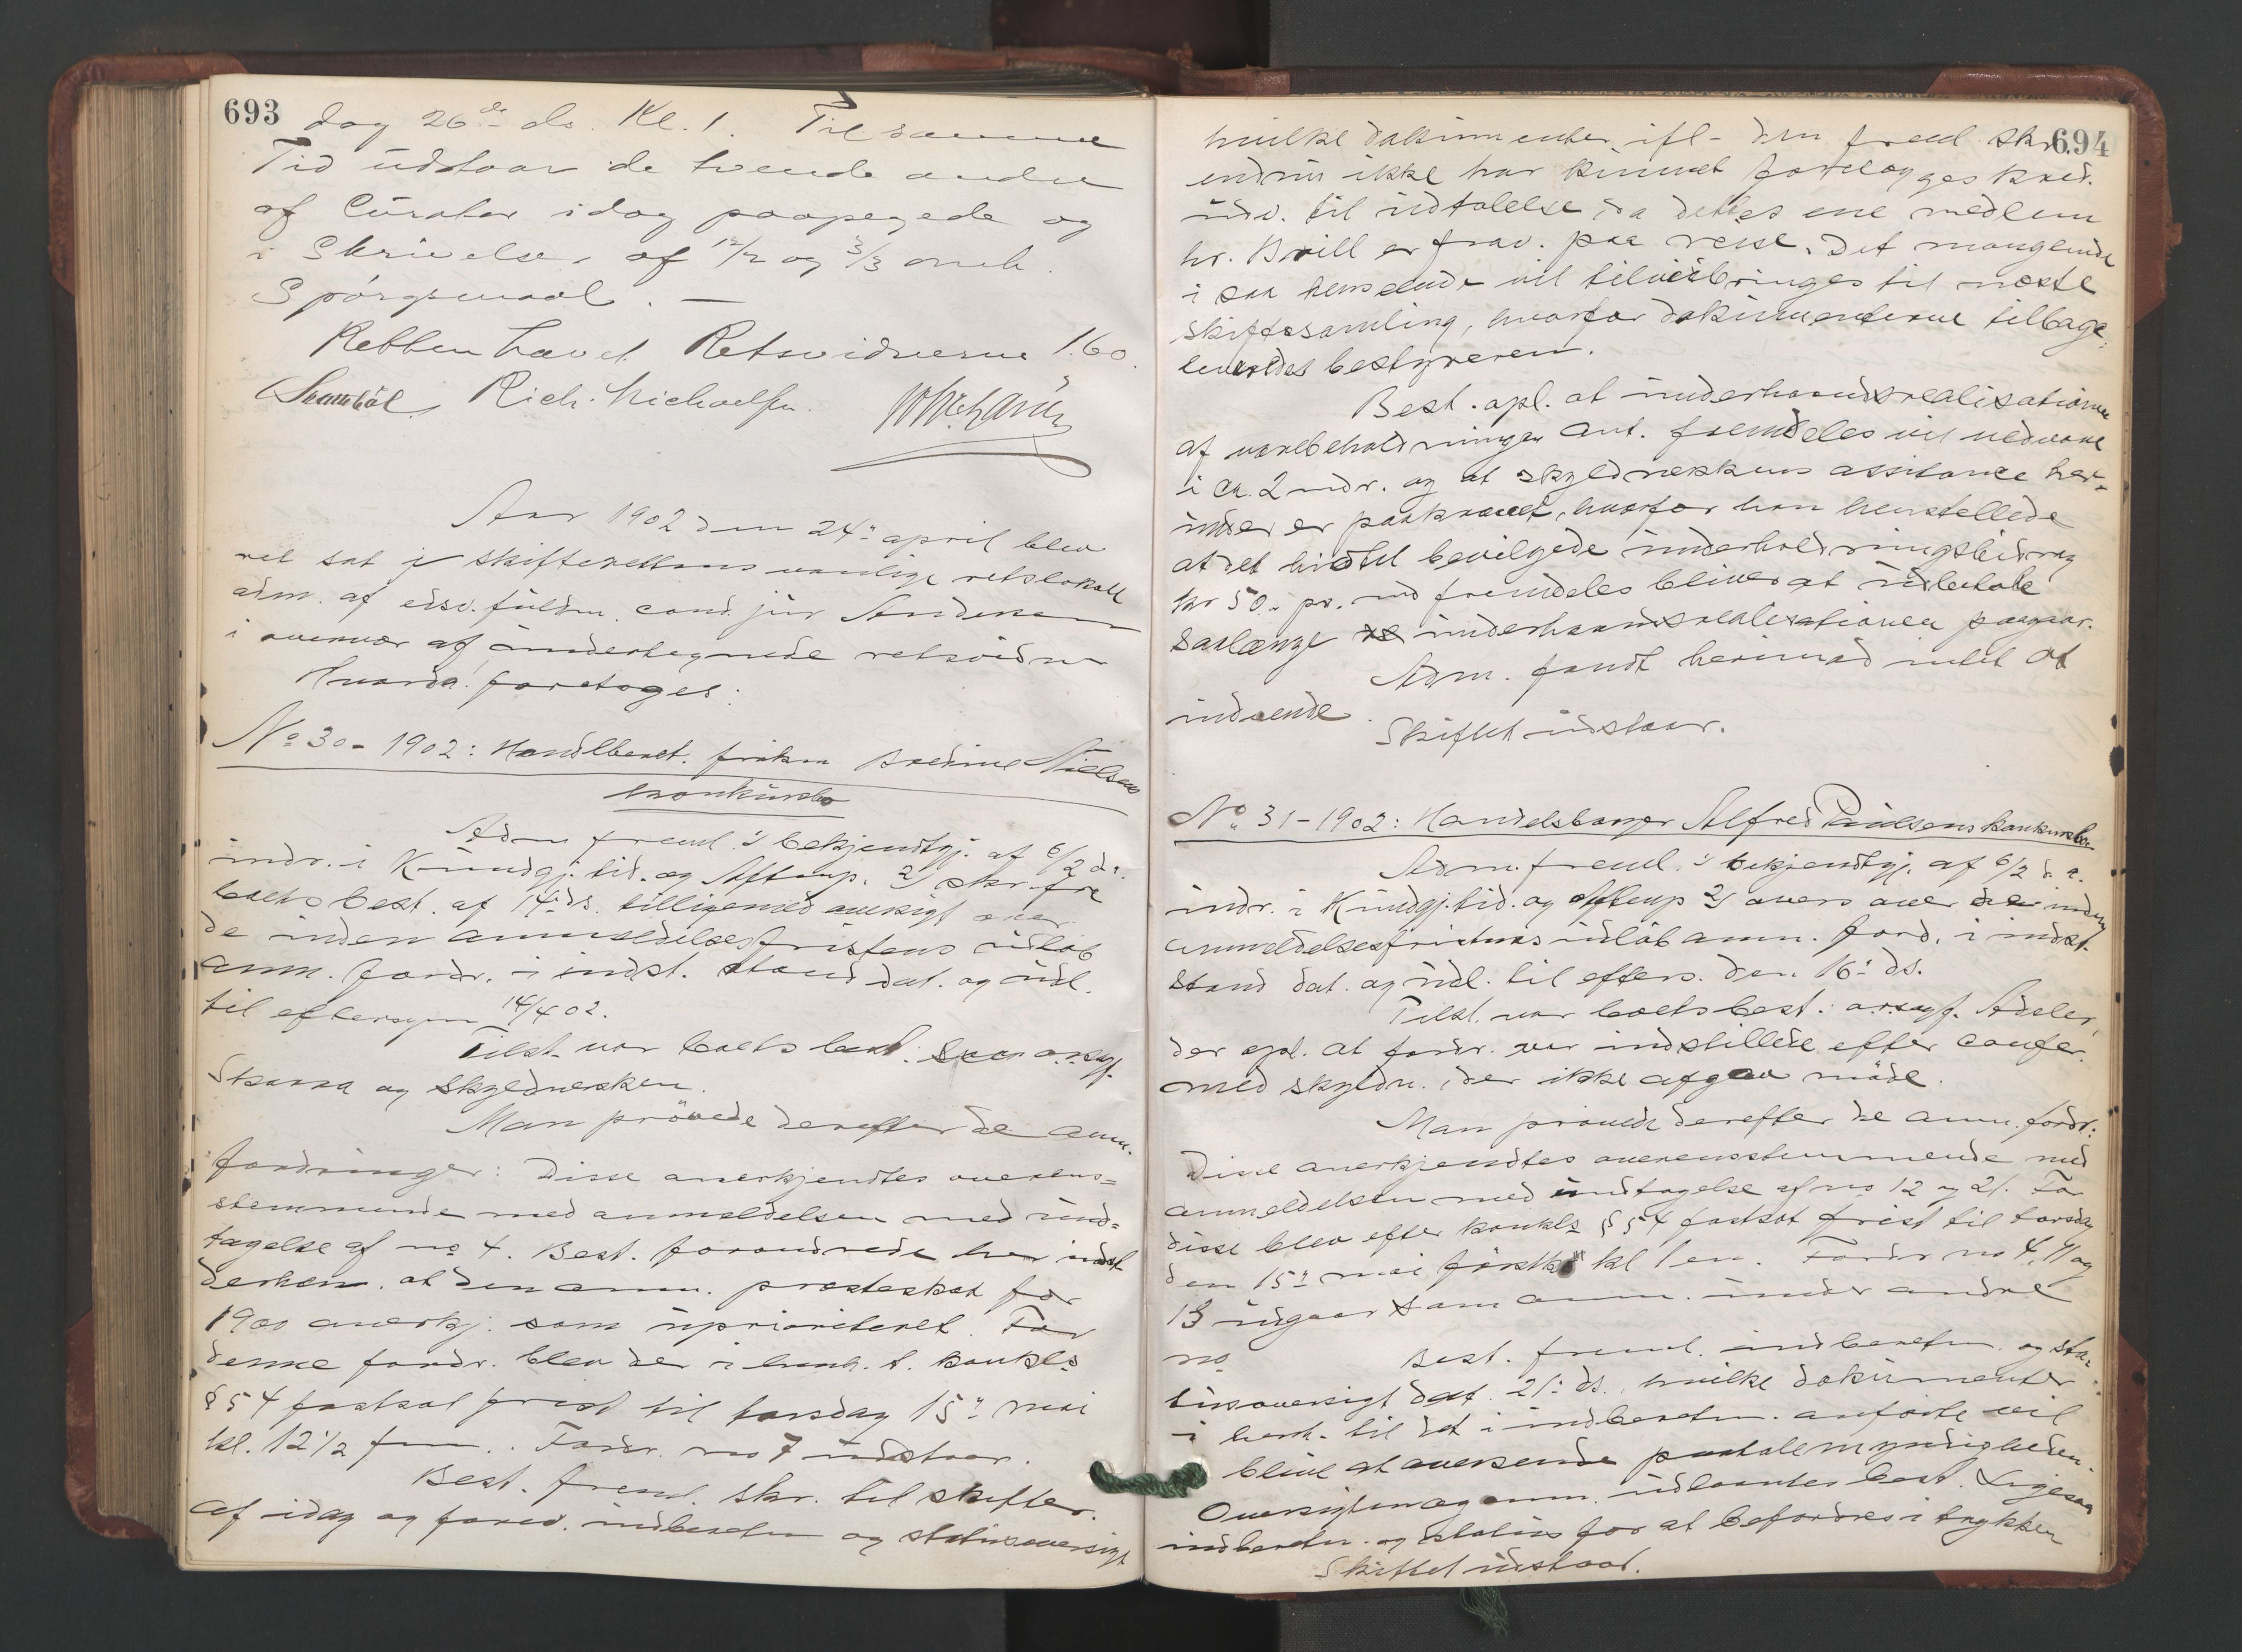 693
dag 26de ds. Kl. 1. Til samme
Tid udstaar de tvende andre
af Curator idag paapegede og
i Skrivelse, af 12/2 og 3/3 omh.
Spörgsmaal. —
Retten hævet Retsvidnerne 1.60.
Rich. Michaelsen
Aar 1902 den 24: april blev
ret sat i skifterettens vanlige retslokale
adm. af edsv. fuldm. cand. jur Andersen
i overvær af undertegnede retsvidner
Hvorda foretoges:
No 30 - 1902: Handlberet. frøken Nielsens
konkursbo
Adm freml. 1) bekjendtgj. af 6/2 d.a.
indr. i Kundgj. tid. og Aftenp. 2) skr. fra
boets best. af 14: ds. tilligemed oversigt over
de inden anmeldelsesfristens udløb
anm. fordr. i indst. stand dat. og udl.
til eftersyn 14/4 02.
Tilst. var boets best. orsagf.
og skyldnersken.
Man prövede derefter de anm.
fordringer: Disse anerkjendtes overens=
stemmende med anmeldelsen med und=
tagelse af no 4. Best. forandrede her indst
derhen, at den anm. præsteskat for
1900 anerkj. som uprioriteret. For
denne fordr. blev der i henh. t. konkl.s
§ 54 fastsat frist til torsdag 15: mai
kl. 12 1/2 fm.. Fordr. no 7 udstaar.
Best. freml. skr. til skifter.
af idag og forev. indberetn og statusoversigt
694
hvilke dokumenter ifl. den freml skr.
endnu ikke har kunnet forelægges kred.
udv. til udtalelse, da dettes ene medlem
hr. Brill er frav. paa reise. Det manglende
i saa henseende vil tilveiebringes til næste
skiftesamling, hvorfor dokumenterne tilbage,
leveredes bestyreren.
Best. opl. at underhaandsrealisationen
af varebeholdningen ant. fremdeles vil vedvare
i ca. 2 mdr. og at skyldnerskens assistance her-
under er paakrævet, hvorfor han henstillede
at det hidtil bevilgede underholdningsbidrag
kr 50,, pr. md fremdeles bliver at udbetale
saalænge underhaandsrealisationen paagaar.
Adm. fandt herimod intet at
indvende.
Skiftet udstaar.
No 31 - 1902: Handelsborger Alfred Paulsens konkursbo
Adm. freml. 1) bekjendtgj. af 6/2 d. a.
indr. i Kundgj. tid. og Aftenp 2) overs over de inden
anmeldelsesfristens udløb anm. ford. i indst.
stand dat. og udl. til efters. den 16: ds.
Tilst. var boets best: orsagf. Adeler,
der opl. at fordr. var indstillede efter confer.
med skyldn., der ikke afgav møde.
Man prövede derefter de anm. fordr:
Disse anerkjendtes overensstemmende med
anmeldelsen med undtagelse af no 12 og 21. For
disse blev efter konkls § 54 fastsat frist til torsdag
den 15: mai førstk kl 1 em. Fordr no 4, 11 og
13 udgaar som anm. under andre
no. Best. freml. indberetn. og sta-
tusoversigt dat. 21: ds., hvilke dokumenter
i henh. til det i indberetn. anførte vil
blive at oversende paatalemyndigheden.
Oversigten og anm. udlaantes best. Ligesaa
indberetn. og status for at befordres i trykken
Skiftet udstaar.